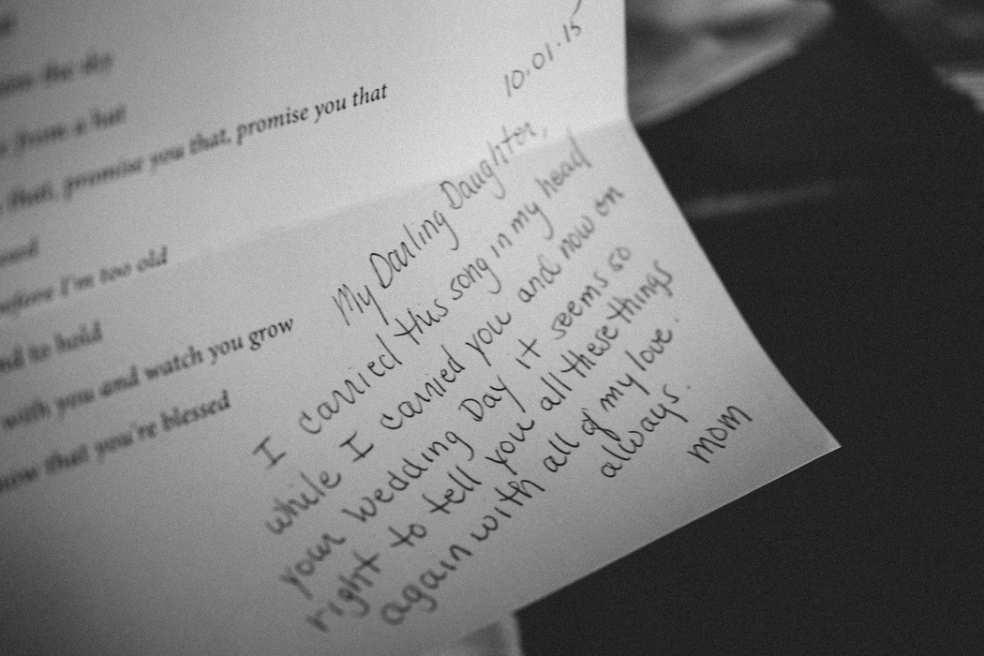 from the sky
from a hat
that, promise you that, promise you that
before I'm too old
and to hold
with you and watch you grow
know that you're blessed
10.01.15
My Darling Daughter,
I carried this song in my head
while I carried you and now on
your wedding Day it seems so
right to tell you all these things
again with all of my love.
always.
mom